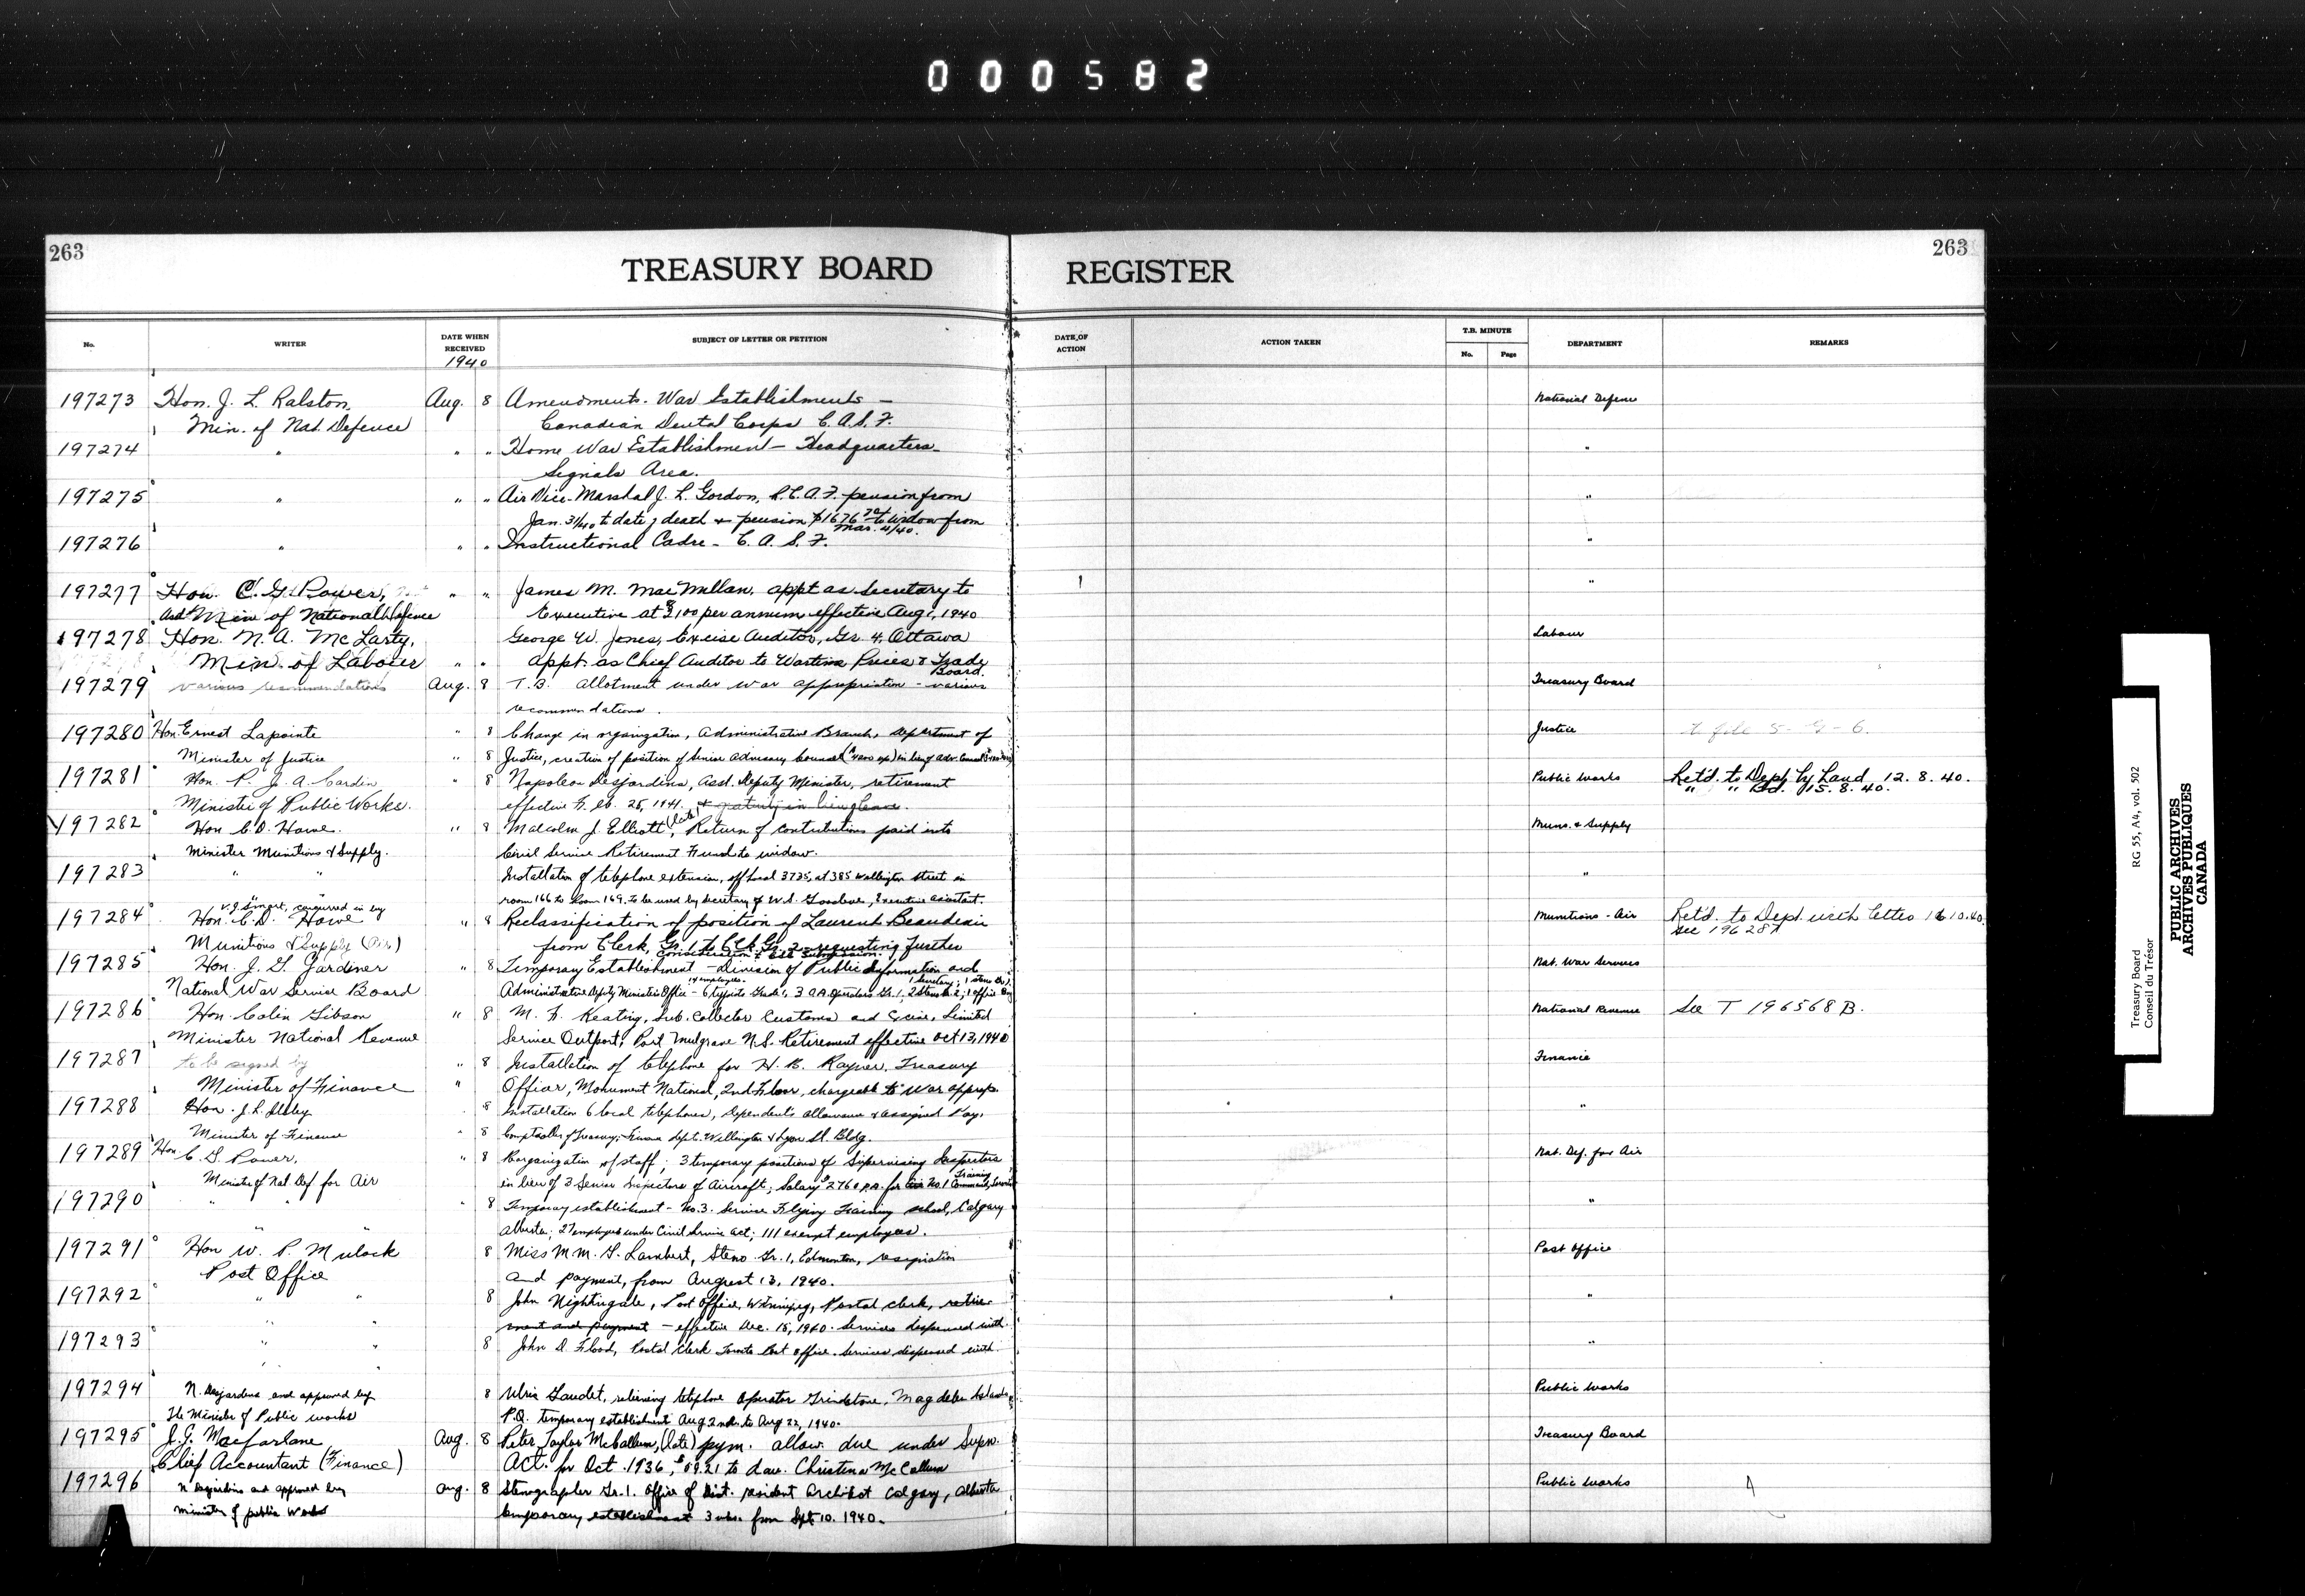 000582
263
263
TREASURY BOARD REGISTER
No. WRITER DATE WHEN RECEIVED SUBJECT OF LETTER OR PETITION DATE OF ACTION ACTION TAKEN T.B. MINUTE No. Page DEPARTMENT REMARKS
1940
197273 Hon. J. L. Ralston, Aug. 8 Amendments - War Establishments - National Defence
Min. of Nat. Defence Canadian Dental Corps C.A.S.F.
197274 " " " Home War Establishment - Headquarters - "
Signals Area.
197275 " " " Air Vice-Marshal J. L. Gordon, R.C.A.F. pension from "
Jan. 31/40 to date of death & pension $1676 to widow from
Mar. 4/40.
197276 " " " Instructional Cadre - C.A.S.F. "
197277 Hon. C. G. Power, " " James M. MacMillan, appt as Secretary to "
Min of National Defence Executive at per annum effective Aug 1, 1940
197278 Hon. N. A. McLarty, George W. Jones, Excise Auditor, Gr. 4, Ottawa Labour
Min. of Labour " " appt. as Chief Auditor to Wartime Prices & Trade
Board.
197279 various recommendations Aug. 8 T.B. allotment under war appropriation - various Treasury Board
recommendations.
197280 Hon. Ernest Lapointe " 8 Change in organization, Administrative Branch, Department of Justice to file 5-G-6.
Minister of Justice " 8 Justice, creation of position of Senior Advisory Counsel in lieu of Adv. Counsel
197281 Hon. P. J. A. Cardin " 8 Napoleon Desjardins, Asst. Deputy Minister, retirement Public Works Ret'd. to Dept. by Hand 12.8.40.
Minister of Public Works. effective Feb. 25, 1941. & gratuity in lieu of leave. " " Bd. 15.8.40.
197282 Hon C.D. Howe. " 8 Malcolm J. Elliott (late), Return of contributions paid into Muns. & Supply
Minister Munitions & Supply. Civil Service Retirement Fund to widow.
197283 " " Installation of telephone extension, off local 3725, at 385 Wellington Street in "
room 166 to Room 169, to be used by secretary of W.A. Executive assistant.
197284 V.J. Smart, concurred in by
Hon. C.D. Howe " 8 Reclassification of position of Laurent Beaudoin Munitions - Air Ret'd. to Dept. with letter 10.40.
Munitions & Supply (Air) from Clerk, Gr. 1 to Clk. Gr. 2 - requesting further see 196287
Consideration submission.
197285 Hon. J. G. Gardiner " 8 Temporary Establishment - Division of Public Information and Nat. War Services
National War Service Board Administrative Deputy Minister's Office - 6 typists Grade 1, 3 O.A. Operators Gr. 1, 2 Stenos Gr. 2, 1 Office Boy
197286 Hon. Colin Gibson " 8 M. F. Keating, Sub-Collector Customs and Excise, Limited National Revenue See T 196568 B.
Minister National Revenue Service Outport, Port Mulgrave N.S. Retirement effective Oct 13, 1940
197287 to be signed by " 8 Installation of telephone for H. B. Rayner, Treasury Finance
Minister of Finance " Officer, Monument National, 2nd Floor, chargeable to War approp.
197288 Hon. J. L. Ilsley 8 Installation 6 local telephones, Dependents allowance & assigned Pay, "
Minister of Finance " 8 Comptroller of Treasury, Finance Dept. Wellington & Lyon St. Bldg.
197289 Hon. C. G. Power, " 8 Reorganization of staff; 3 temporary positions of Supervising Inspectors Nat. Def. for Air
Minister of Nat. Def for Air in lieu of 3 Senior Inspectors of Aircraft; Salary $2760 p.a. for No. 1 Training Command,
197290 " " " 8 Temporary establishment - No. 3. Service Flying Training school, Calgary "
" " Alberta; 27 employees under Civil Service act; 111 exempt employees.
197291 Hon W. P. Mulock 8 Miss M.M. G. Lambert, Steno Gr. 1, Edmonton, resignation Post Office
Post Office and payment, from August 13, 1940.
197292 " " 8 John Nightingale, Post Office, Winnipeg, Postal clerk, retire- "
" " ment and payment - effective Dec. 15, 1940. Services dispensed with.
197293 " " 8 John D. Flood, Postal Clerk Toronto Post Office. Services dispensed with. "
197294 N. Desjardins and approved by 8 Ulric Gaudet, relieving telephone Operator Grindstone, Magdalen Islands, Public Works
The Minister of Public Works P.Q. temporary establishment Aug 2nd. to Aug 22, 1940.
197295 J. G. Macfarlane Aug. 8 Peter Taylor McCallum, (late) pym. allow. due under Supn. Treasury Board
Chief Accountant (Finance) Act. for Oct. 1936, $59.21 to dau. Christina McCallum
197296 N. Desjardins and approved by Aug. 8 Stenographer Gr. 1. Office of Dist. resident Architect Calgary, Alberta Public Works
Minister of public Works temporary establishment 3 mos. from Sept 10. 1940.
Treasury Board RG 55, A4, vol. 502
Conseil du Trésor
PUBLIC ARCHIVES
ARCHIVES PUBLIQUES
CANADA